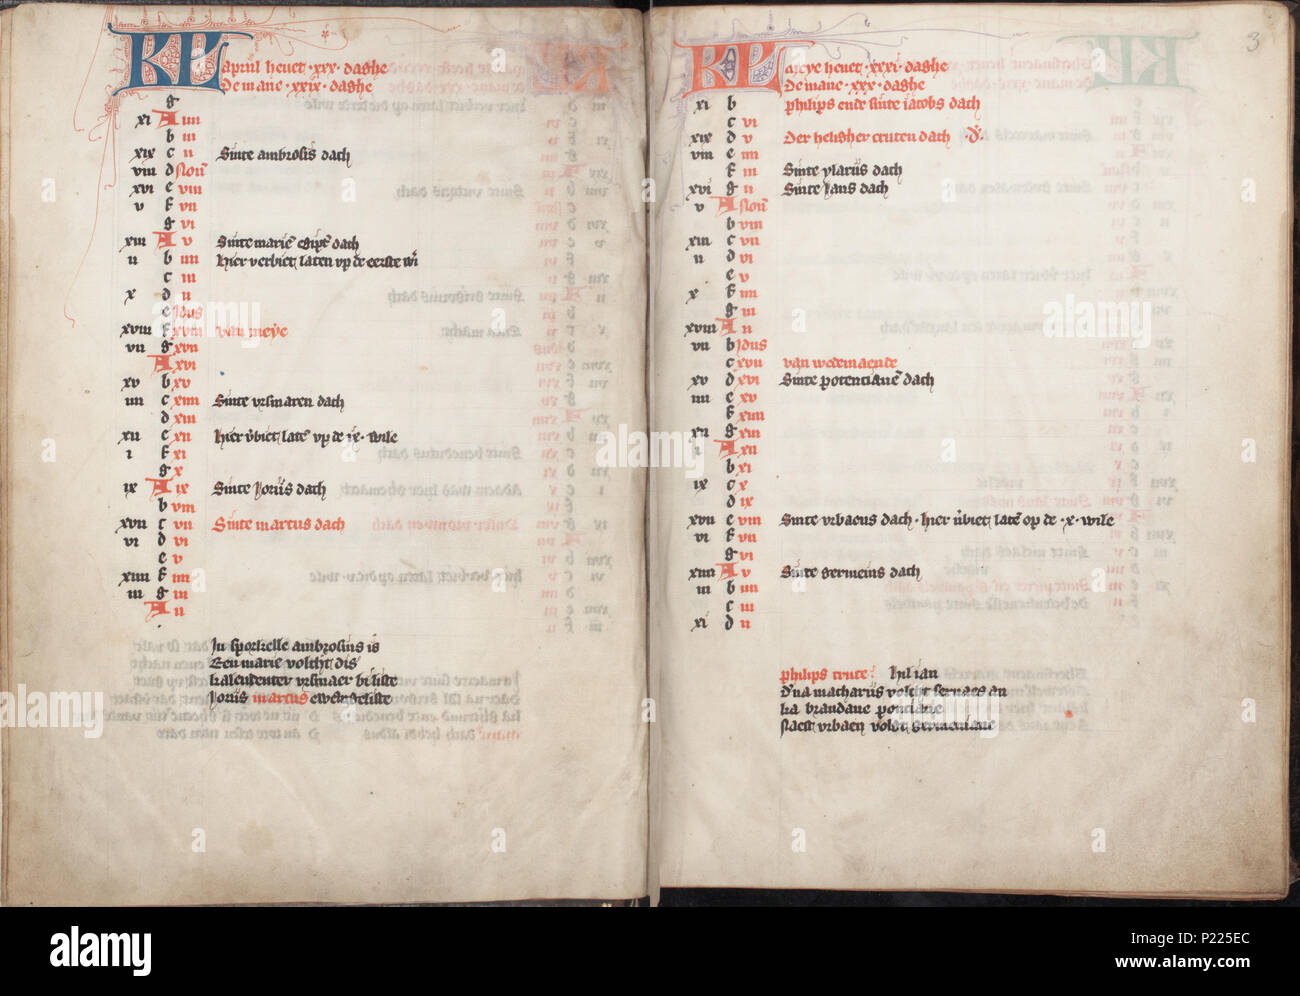 KL april hevet .xxx. daghe
De mane .xxix. daghe
g
xi A iiii
b iii
xix c ii Sinte ambrosis dach
viii d noñ
xvi e viii
v f vii
g vi
xiii A v
ii b iiii hier verbiet laten op de eerste
c iii
x d ii
e idus
xviii f xviii van meye
vii g xvii
A xvi
xv b xv
iiii c xiiii Sinte ursmaren dach
d xiii
xii e xii hier v̄biet latē op de ix. wile
i f xi
g x
ix A ix Sinte Joriis dach
b viii
xvii c vii Sinte marcus dach
vi d vi
e v
xiiii f iiii
iii g iii
A ii
In sporkelle ambrosius is
Een marie volcht dis
ursmaer
Joriis marcus ewangeliste
3
KL meye hevet .xxxi. daghe
De mane .xxx. daghe
xi b philips ende sinte iacobs dach
c vi
xix d v Der heligher crucen dach
viii e iiii
f iii Sinte ylariis dach
xvi g ii Sinte Jans dach
v A noñ
b viii
xiii c vii
ii d vi
e v
x f iiii
g iii
xviii A ii
vii b idus
c xvii van wedemaende
xv d xvi Sinte potencianē dach
iiii e xv
f xiiii
xii g xiii
i A xii
b xi
ix c x
d ix
xvii e viii Sinte urbaens dach . hier v̄biet latē op de .x. wile
vi f vii
g vi
xiiii A v Sinte germeins dach
iii b iiii
c iii
xi d ii
philips cruce
macharius volcht servaes an
brandane
urbaen volcht
alamy stock photo
P225EC
www.alamy.com